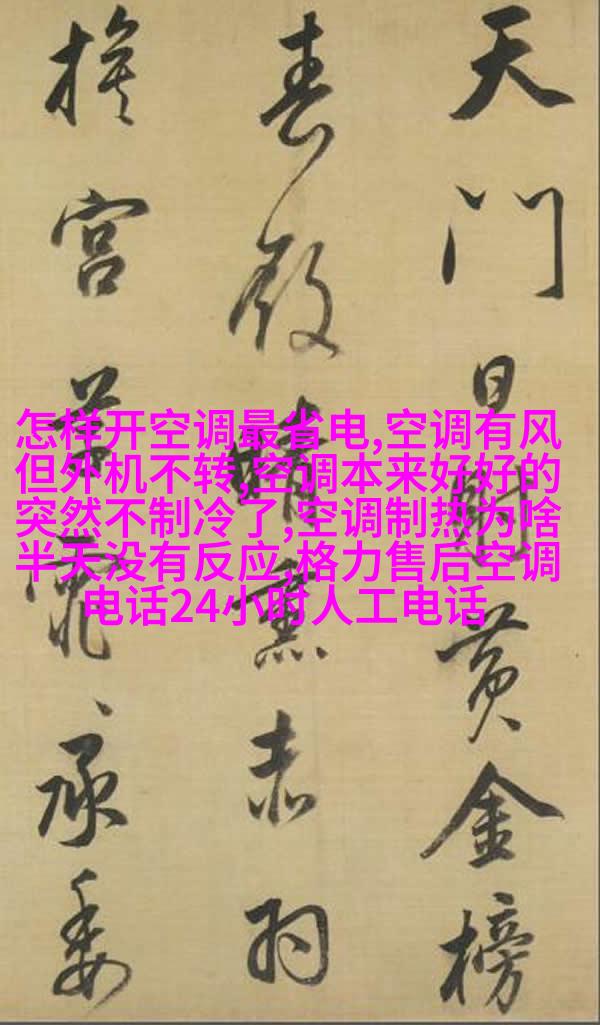 天門日射黄金榜
春殿晴熏赤羽
旗宮草霏承委
怎样开空调最省电,空调有风
但外机不转,空调本来好好的
突然不制冷了,空调制热为啥
半天没有反应,格力售后空调
电话24小时人工电话